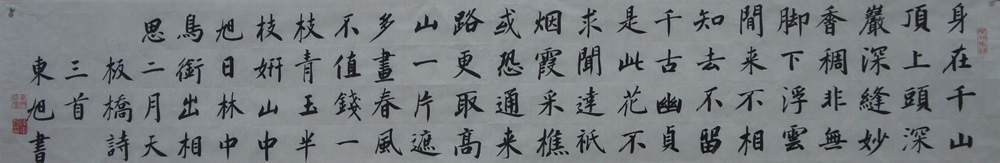 身在千山
頂上頭深
巖深縫妙
香稠非無
脚下浮雲
間來不相
知去不留
千古幽貞
是此花不
求聞達祇
烟霞采樵
或恐通来
路更取高
山一片遮
多畫春風
不值錢一
枝青玉半
枝妍山中
旭日林中
鳥銜出相
思二月天
板橋詩
三首
東旭書